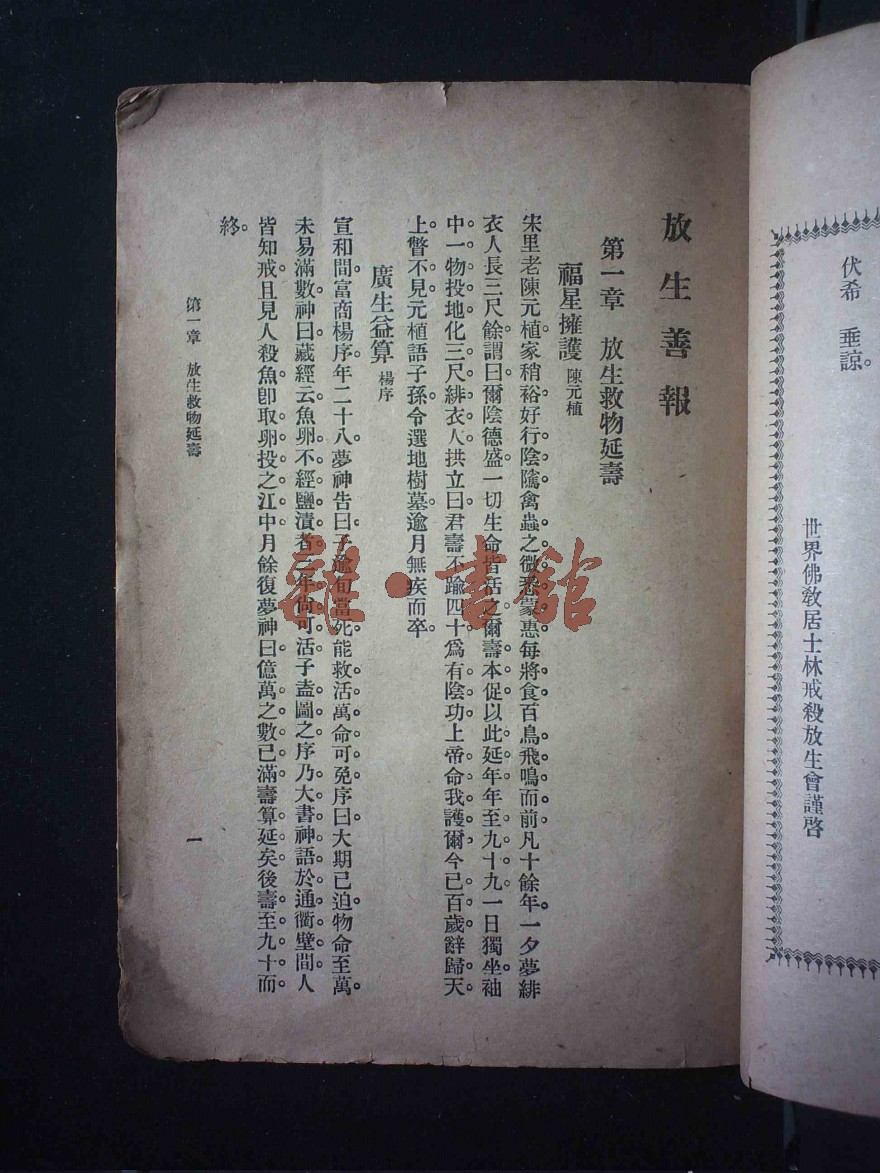 伏希　垂諒。
世界佛教居士林戒殺放生會謹啓
放生善報
第一章　放生救物延壽
福星擁護 陳元植
宋里老陳元植家稍裕好行陰隲禽蟲之微悉蒙惠每將食百鳥飛鳴而前凡十餘年。一夕夢緋
衣人長三尺餘。謂曰爾陰德盛一切生命皆活之。爾壽本促以此延年年至九十九一日獨坐。袖
中一物投地。化三尺緋衣人拱立曰君壽不踰四十爲有陰功上帝命我護爾。今已百歲。辭歸天
上瞥不見。元植語子孫。令選地樹墓。逾月無疾而卒。
廣生益算 楊序
宣和間。富商楊序。年二十八。夢神告曰。子逾旬當死能救活萬命可免序曰大期已迫。物命至萬。
未易滿數。神曰藏經云魚卵不經鹽漬者三年尚可活子盍圖之。序乃大書神語於通衢壁間。人
皆知戒。且見人殺魚卽取卵投之江中。月餘復夢神曰億萬之數已滿。壽算延矣。後壽至九十而
終。
第一章　放生救物延壽
一
雜·書館